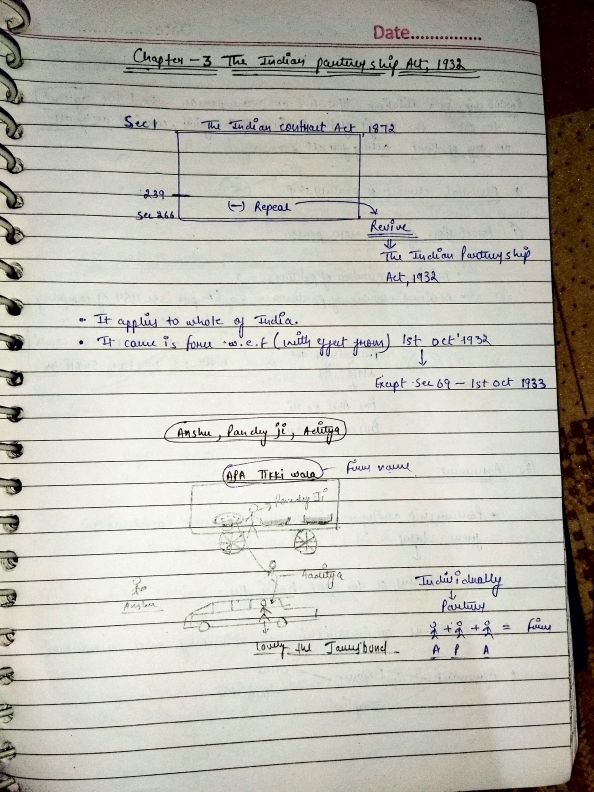 Date...............
Chapter - 3 The Indian partnership Act, 1932
Sec 1 The Indian contract Act, 1872
239
(-) Repeal
Sec 266
Revive
The Indian Partnership
Act, 1932
• It applies to whole of India.
• It came is force w.e.f (with effect from) 1st oct' 1932
Except Sec 69 - 1st oct 1933
Anshu, Pandey ji, Aditya
APA Tikki wala - Firm name
Pandey Ji
Aaditya
Anshu
Individually
Partner
+ + = Firm
A P A
Lovely the